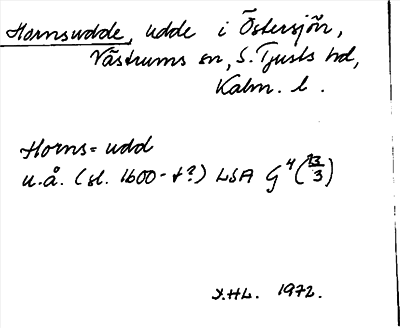 Hornsudde, udde i Östersjön,
Västrums sn, S. Tjusts hd,
Kalm. l.
Horns=udd
u.å. (sl. 1600-t?) LSA G⁴ (13/3)
Y.HL. 1972.